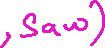 , saw)